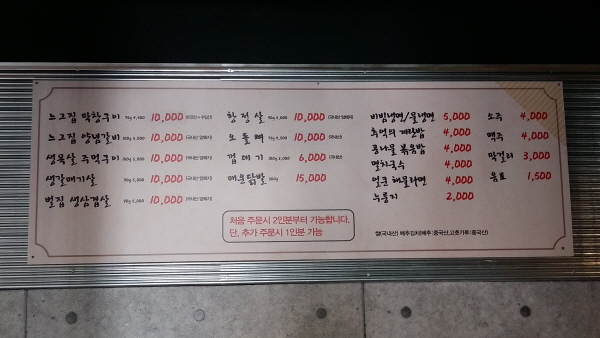 느그집 막창구이 10,000
느그집 양념갈비 10,000
생목살 주먹구이 10,000
생갈매기살 10,000
벌집 생삼겹살 10,000
항정살 10,000
오돌뼈 10,000
껍데기 6,000
매운닭발 15,000
비빔냉면/물냉면 5,000
추억의 계란밥 4,000
콩나물 볶음밥 4,000
멸치국수 4,000
얼큰 해물라면 4,000
누룽지 2,000
소주 4,000
맥주 4,000
막걸리 3,000
음료 1,500
처음 주문시 2인분부터 가능합니다.
단, 추가 주문시 1인분 가능
쌀(국내산) 배추김치(배추:중국산,고춧가루:중국산)